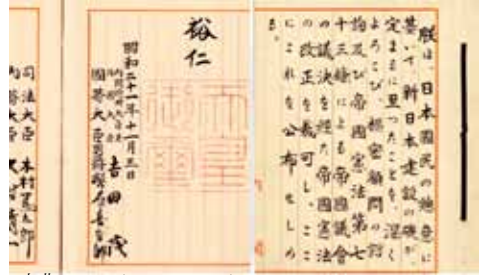 朕は、日本國民の總意に
基いて、新日本建設の礎が、
定まるに至つたことを、深く
よろこび、樞密顧問の諮
詢及び帝國憲法第七
十三條による帝國議會
の議決を經た帝國憲法
の改正を裁可し、ここ
にこれを公布せしめ
る。
裕仁
天皇御璽
昭和二十一年十一月三日
内閣總理大臣兼
外務大臣 吉田茂
國務大臣 男爵 幣原喜重郎
司法大臣 木村篤太郎
内務大臣 大村清一